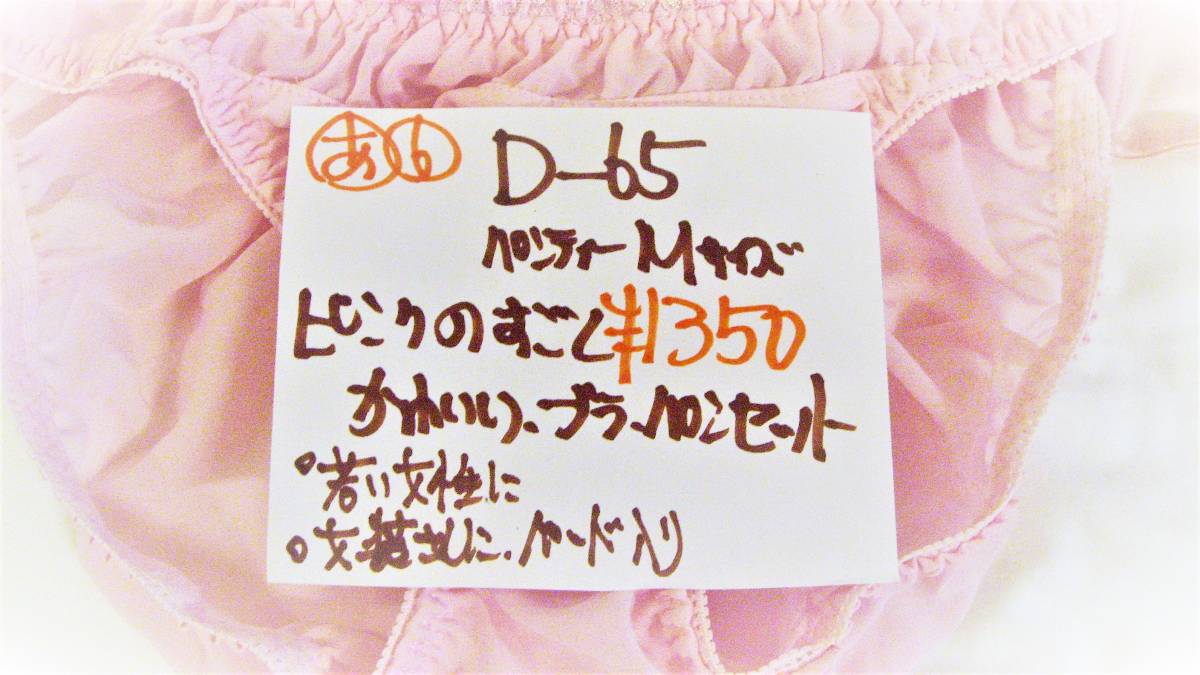 あ6 D-65
パンティー Mサイズ
ピンクのすごく ¥1350
かわいい、ブラ、パンセット
○若い女性に
○女装さんに、パード入り